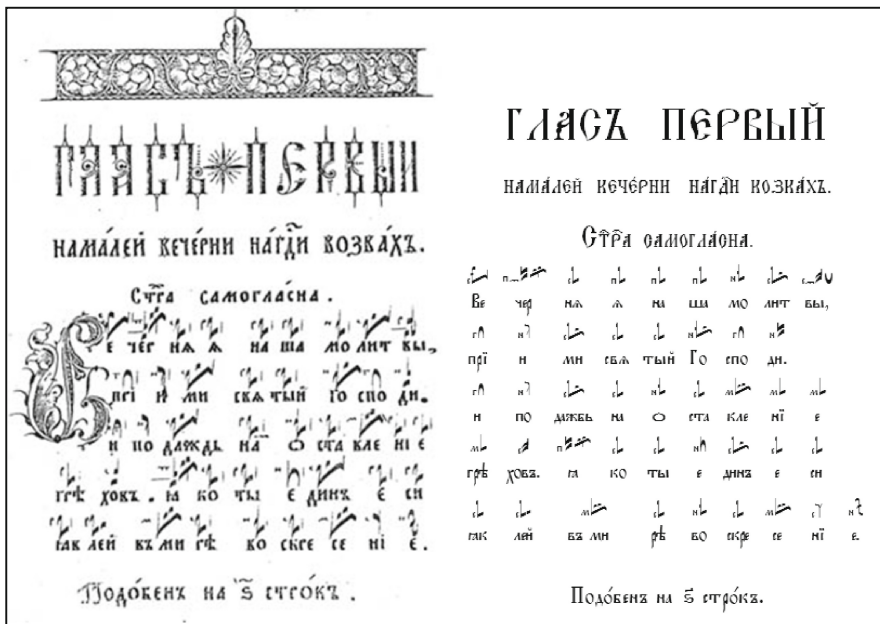 ГЛАСЪ ПЕРВЫЙ
НАМА́ЛЕЙ ВЕЧЕ́РНИ НА́ГД҃И ВОЗВА́ХЪ.
Ст҃ра самогла́сна.
Ве че́р нѧ ѧ на ша мо лит вы,
прї и ми свѧ тый го спо ди.
и по даждь на ѡ ста вле нї е
грѣ ховъ. ꙗ ко ты е динъ е си
ꙗв лей въ ми рѣ во скре се нї е.
Подо́бенъ на ѕ҃ стро́къ.
ГЛАСЪ ПЕРВЫЙ
НАМА́ЛЕЙ ВЕЧЕ́РНИ НА́ГД҃И ВОЗВА́ХЪ.
Ст҃р҃а самогла́сна.
Ве чер нѧ ѧ на ша мо лит вы,
прї и ми свѧ тый Го спо ди.
и по даждь на ѡ ста вле нї е
грѣ ховъ. ꙗ ко ты е динъ е си
ꙗв лей въ ми рѣ во скре се нї е.
Подо́бенъ на ѕ҃ стро́къ.